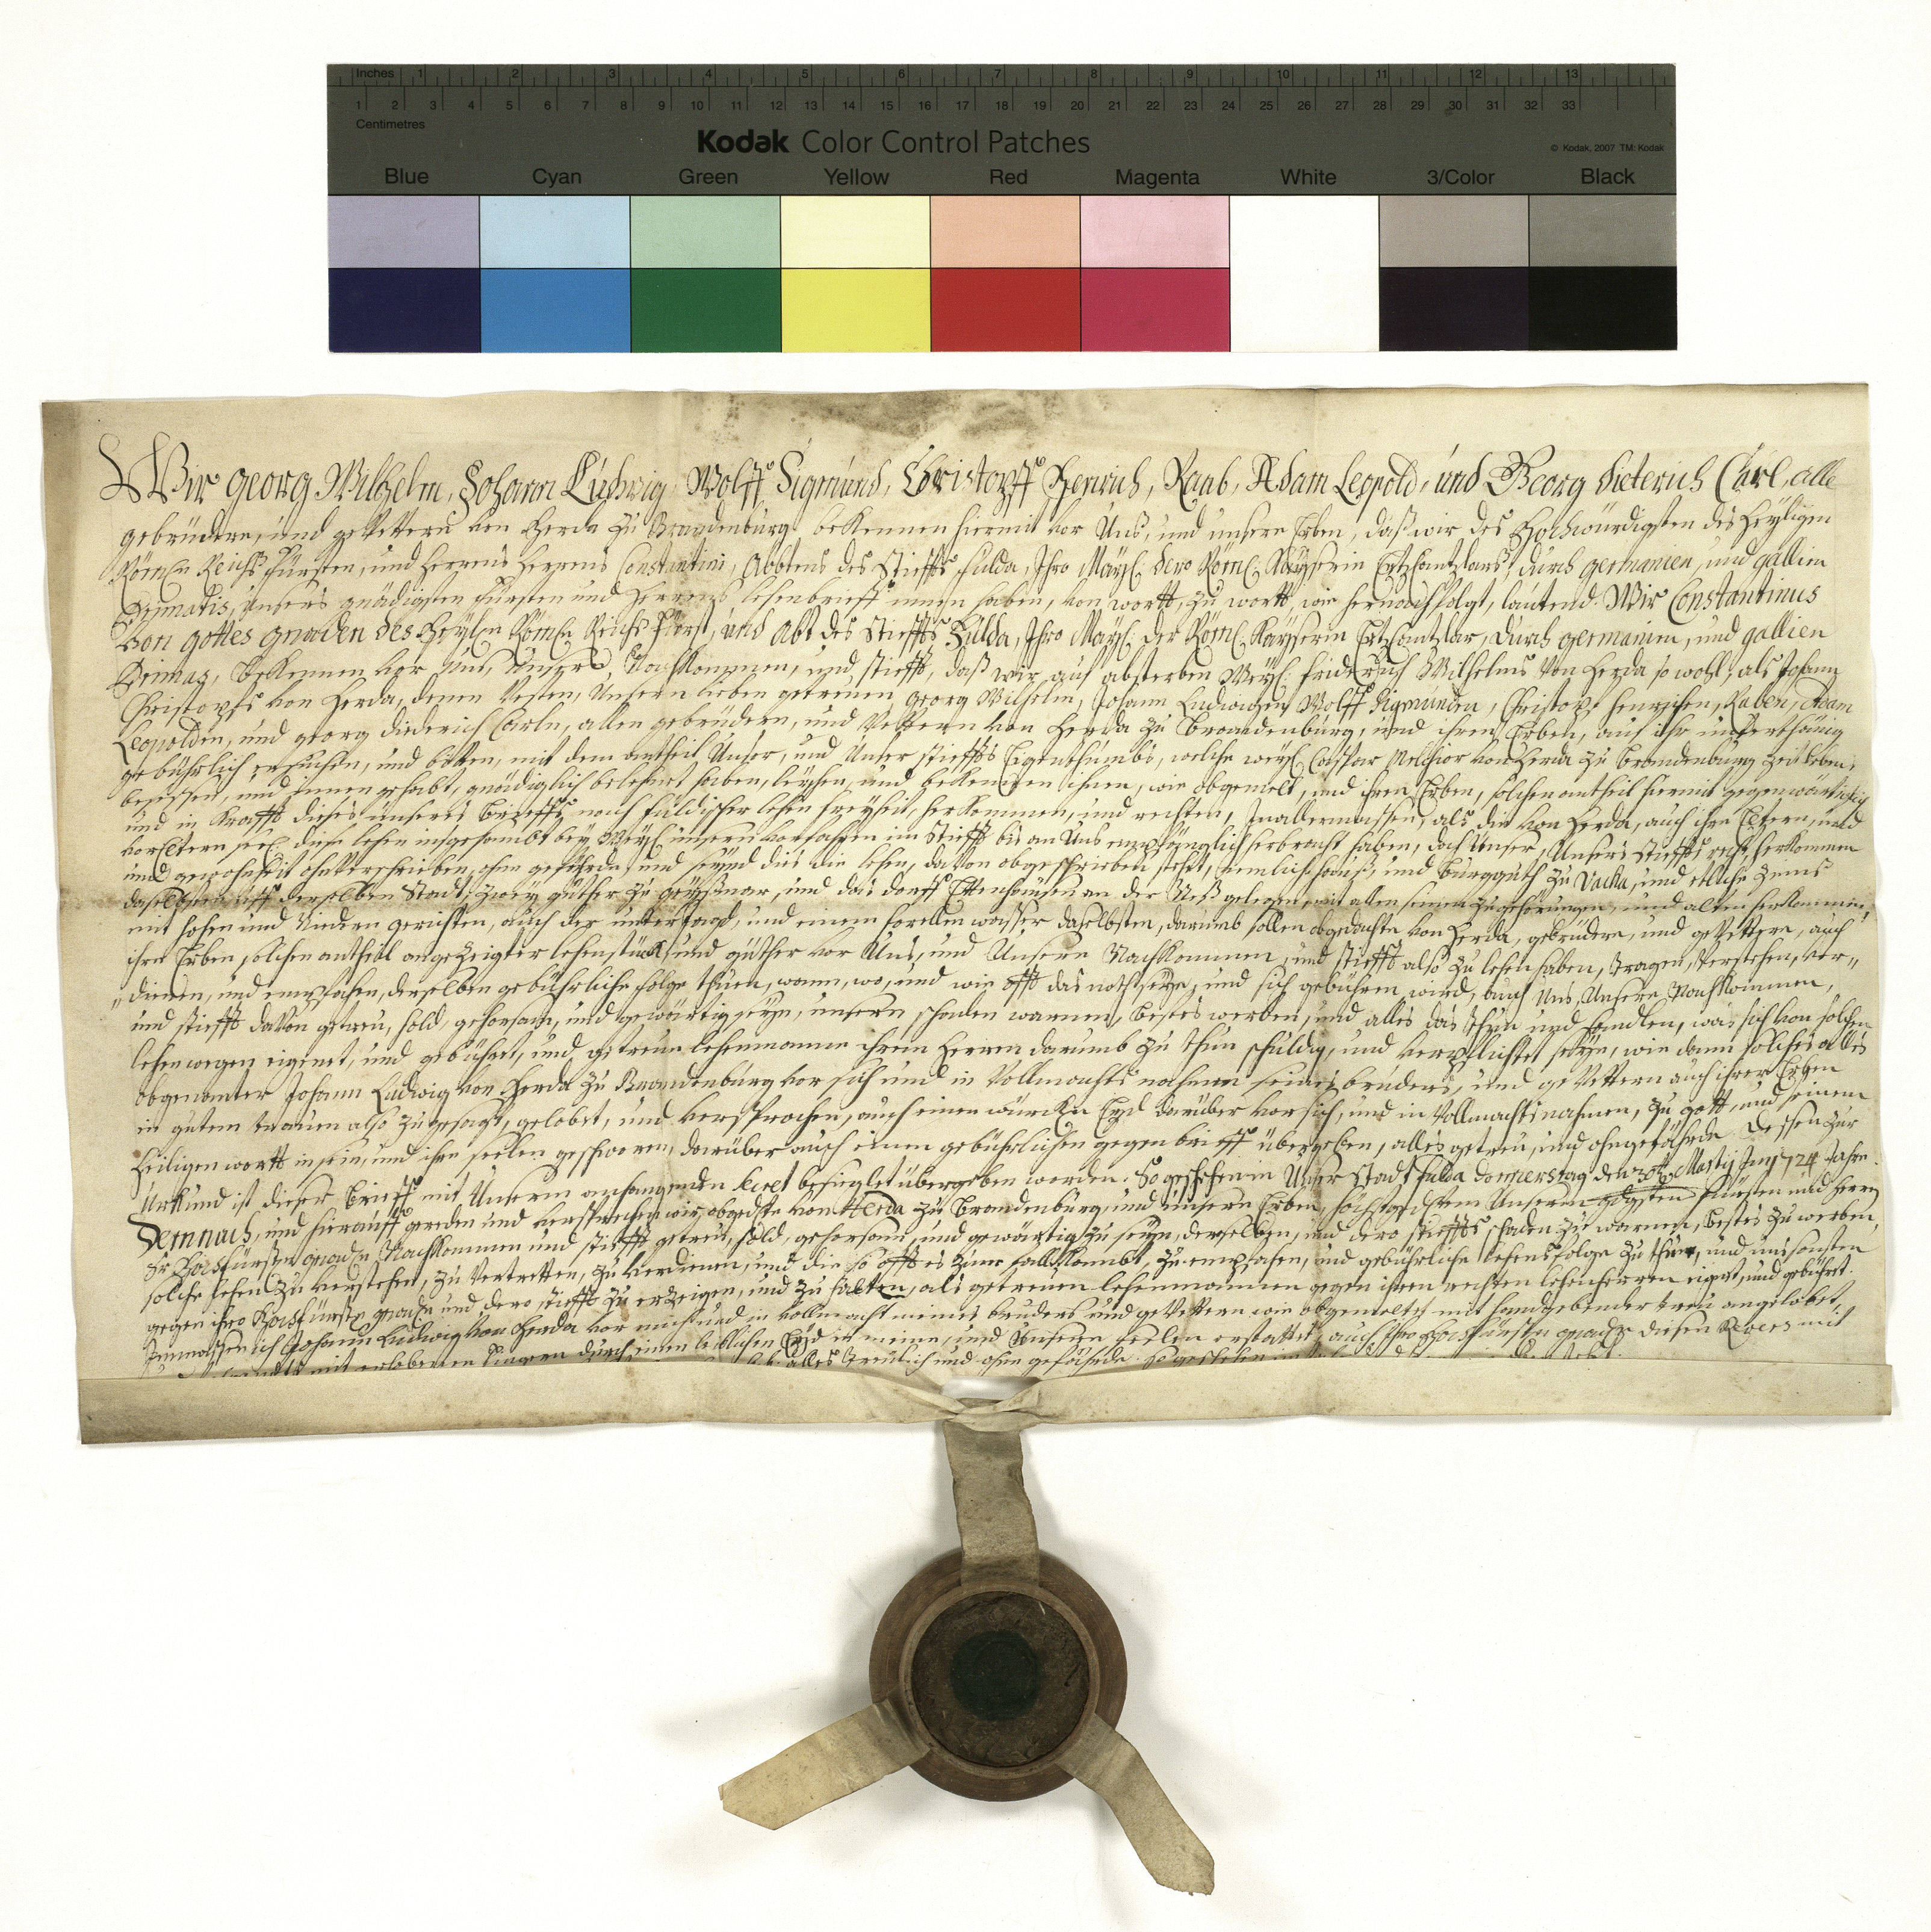 Inches 1 2 3 4 5 6 7 8 9 10 11 12 13
1 2 3 4 5 6 7 8 9 10 11 12 13 14 15 16 17 18 19 20 21 22 23 24 25 26 27 28 29 30 31 32 33
Centimetres
Kodak Color Control Patches
© Kodak, 2007 TM: Kodak
Blue Cyan Green Yellow Red Magenta White 3/Color Black
Wir Georg Wilhelm, Johann Ludwig, Wolff Sigmund, Christopff Henrich, Raab, Adam Leopold, und Georg Dieterich Carl, alle
gebrüdere, und gevettern von Herda zu Brandenburg bekennen hiermit vor Uns, und unsere Erben, daß wir des Hochwürdigsten des Heyligen
Römen Reichs Fürsten, und Herrens Herrens Constantini, Abbtens des Stieffts Fulda, Ihro Mayt: dero Röm: Kayserin Ertzcantzlars, durch germanien, und gallien
Primatis, unsers gnädigsten Fürsten und Herrens lehenbrieff innen haben, von wortt, zu wortt, wie hernachfolgt, lautend. Wir Constantinus
Von gottes gnaden des Heylen Römen Reichs Fürst, und Abt des Stieffts Fulda, Ihro Mayt: der Röm: Kayserin Ertzcantzlar, durch germanien, und gallien
Primas, Bekennen vor uns, unsere Nachkommen, und stiefft, daß wir auf absterben Weyl: Friderich Wilhelms von Herda so wohl, als Johann
Christopfs von Herda, denen Vesten, Unsern lieben getreuen Georg Wilhelm, Johann Ludwigen Wolff Sigmunden, Christoph Henrichen, Raben, Adam
Leopolden, und georg diederich Carln, allen gebrüdern, und Vettern von Herda zu Brandenburg, und ihren Erben, auf ihr unterthänig
gebührlich ersuchen, und bitten, mit dem antheil Unser, und Unser stieffts Eigenthumbs, welche weyl: Caspar Melchior von Herda zu Brandenburg zeit lebens
besessen, und innen gehabt, gnädiglich belehnt haben, leyhen, und bekennen ihnen, wie obgemelt, und ihren Erben, solchen antheil hiermit gegenwärtiglich
und in Krafft dieses unsers Brieffs nach fuldischer lehen freyheit, herkommen, und rechten, Inallermassen, als die von Herda, auch ihre Eltern, und
vorEltern seel: diese lehen insgesambt bey Weyl: unsern vorfahren im Stiefft bis an Uns empfänglich herbracht haben, doch Unser, Unsers Stieffts recht, herkommen
und gewohnheit ohnverschrieben, ohne gefährde, und seynd dies die lehen, davon obgeschrieben stehet, nemlich hauß, und Burgguth zu Vacka, und etliche Zinns
daselbsten uff derselben Stadt, zwey güther zu, und das dorff Ettenhausen an der gelegen, mit allen seinen zugehörungen, und alten herkommen,
mit hohen und Niedern gerichten, auch der unterjagd, und einem forellen wasser daselbsten, darumb sollen obgedachte von Herda, gebrüdere, und gevettere, auch
ihre Erben solchen antheil angezeigter lehenstück, und güther vor Uns, und Unsere Nachkommen, und stiefft also zu lehen haben, tragen, verstehen, ver-
dienen, und empfahen, derselben gebührliche folge thuen, wann, wo, und wie offt das noth seye, und sich gebühren wird, auch Uns, Unsere Nachkommen,
und stiefft davon getreu, hold, gehorsam, und gewärtig seyn, unsern schaden warnen, bestes werben, und alles das thun und handlen, was sich von solchen
lehen wegen eigenet, und gebühret, und getreue lehenmanne ihrem Herren darumb zu thun schuldig, und verpflichtet seyn, wie dann solches alles
obgenanter Johann Ludwig von Herda zu Brandenburg vor sich und in Vollmachts nahmen seines bruders, und gevettern auch ihrer Erben
in gutem trauen also zugesagt, gelobet, und versprochen, auch einen würcken Eyd darüber vor sich, und in Vollmachts nahmen, zu gott, und seinem
heiligen wortt in sein, und ihre seelen geschworen, darüber auch einen gebührlichen gegenbrieff übergeben, alles getreu, und ohngefährde dessen zur
Urkund ist dieser Brieff mit Unserm anhangenden Secret besieglet übergeben worden. So geschehen in Unser Stadt Fulda donnerstag den Martij Im 1724 Jahre.
Demnach, und hierauff gereden und versprechen wir obgedste von Herda zu Brandenburg, und unsere Erben, Unserm gdgsten Fürsten und Herrn
Sr Hochfürsten gnaden Nachkommen und stiefft getreu, hold, gehorsam, und gewärtig zu seyn, derselben, und dero stieffts schaden zu warnen, bestes zu werben,
solche lehen zu verstehen, zu vertretten, zu verdienen, und die so offt es zum fall kombt, zu empfahen, und gebührliche lehensfolge zu thun, und uns sonsten
gegen ihro Hochfürstn gnaden und dero stiefft zu erzeigen, und zu halten, als getreuen lehenmannen gegen ihren rechten lehenherren eignet, und gebühret.
Inmassen ich Johann Ludwig von Herda vor mich und in vollmacht meines bruders und gevettern wie obgemeltet mit handgebender treu angelobet,
mit erhobenen fingern durch einen leiblichen Eyd in meine, und Unsere seelen erstattet, auch Ihro Hochfürstn gnaden diesen Revers mit
alles treulich und ohne gefährde. So geschehen